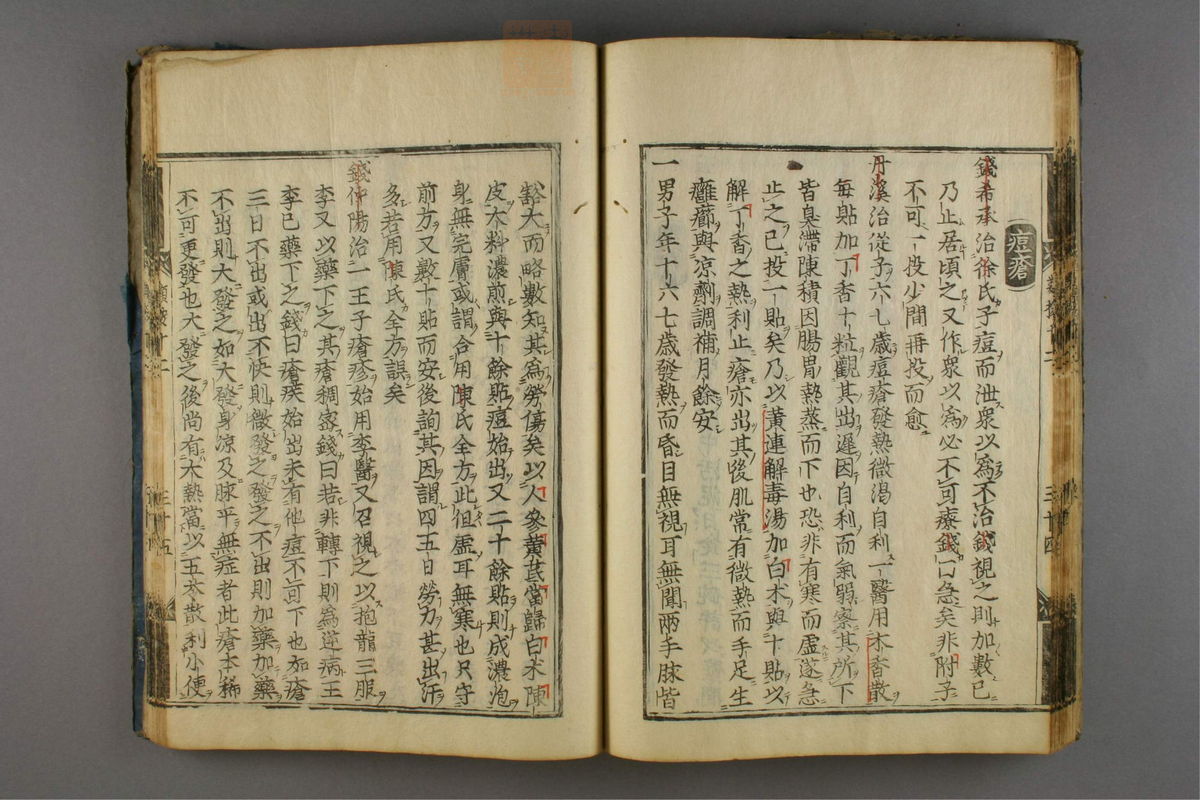 痘瘡
錢希承治徐氏子痘而泄衆以爲不治錢視之則加數已
乃止居頃之又作衆以爲必不可療錢曰急矣非附子
不可一投少間再投而愈
丹溪治從子六七歲痘瘡發熱微渴自利一醫用木香散
每貼加丁香十粒觀其出遲因自利而氣弱察其所下
皆臭滯陳積因腸胃熱蒸而下也恐非有寒而虛遂急
止之已投一貼矣乃以黃連解毒湯加白朮與十貼以
解丁香之熱利止瘡亦出其後肌常有微熱而手足生
癰癤與凉劑調補月餘安
一男子年十六七歲發熱而昏目無視耳無聞兩手脉皆
三十四
豁大而略數知其爲勞傷矣以人參黃芪當歸白朮陳
皮大料濃煎與十餘貼痘始出又二十餘貼則成濃泡
身無完膚或謂合用陳氏全方此但虛耳無寒也只守
前方又數十貼而安後詢其因謂四五日勞力甚出汗
多若用陳氏全方誤矣
錢仲陽治一王子瘡疹始用李醫又召視之以抱龍三服
李又以藥下之其瘡稠密錢曰若非轉下則爲逆病王
李已藥下之錢曰瘡疾始出未有他痘不可下也如瘡
三日不出或出不快則微發之發之不出則加藥加藥
不出則大發之如大發身凉及脉平無症者此瘡本稀
不可更發也大發之後尚有大熱當以五苓散利小便
三十五